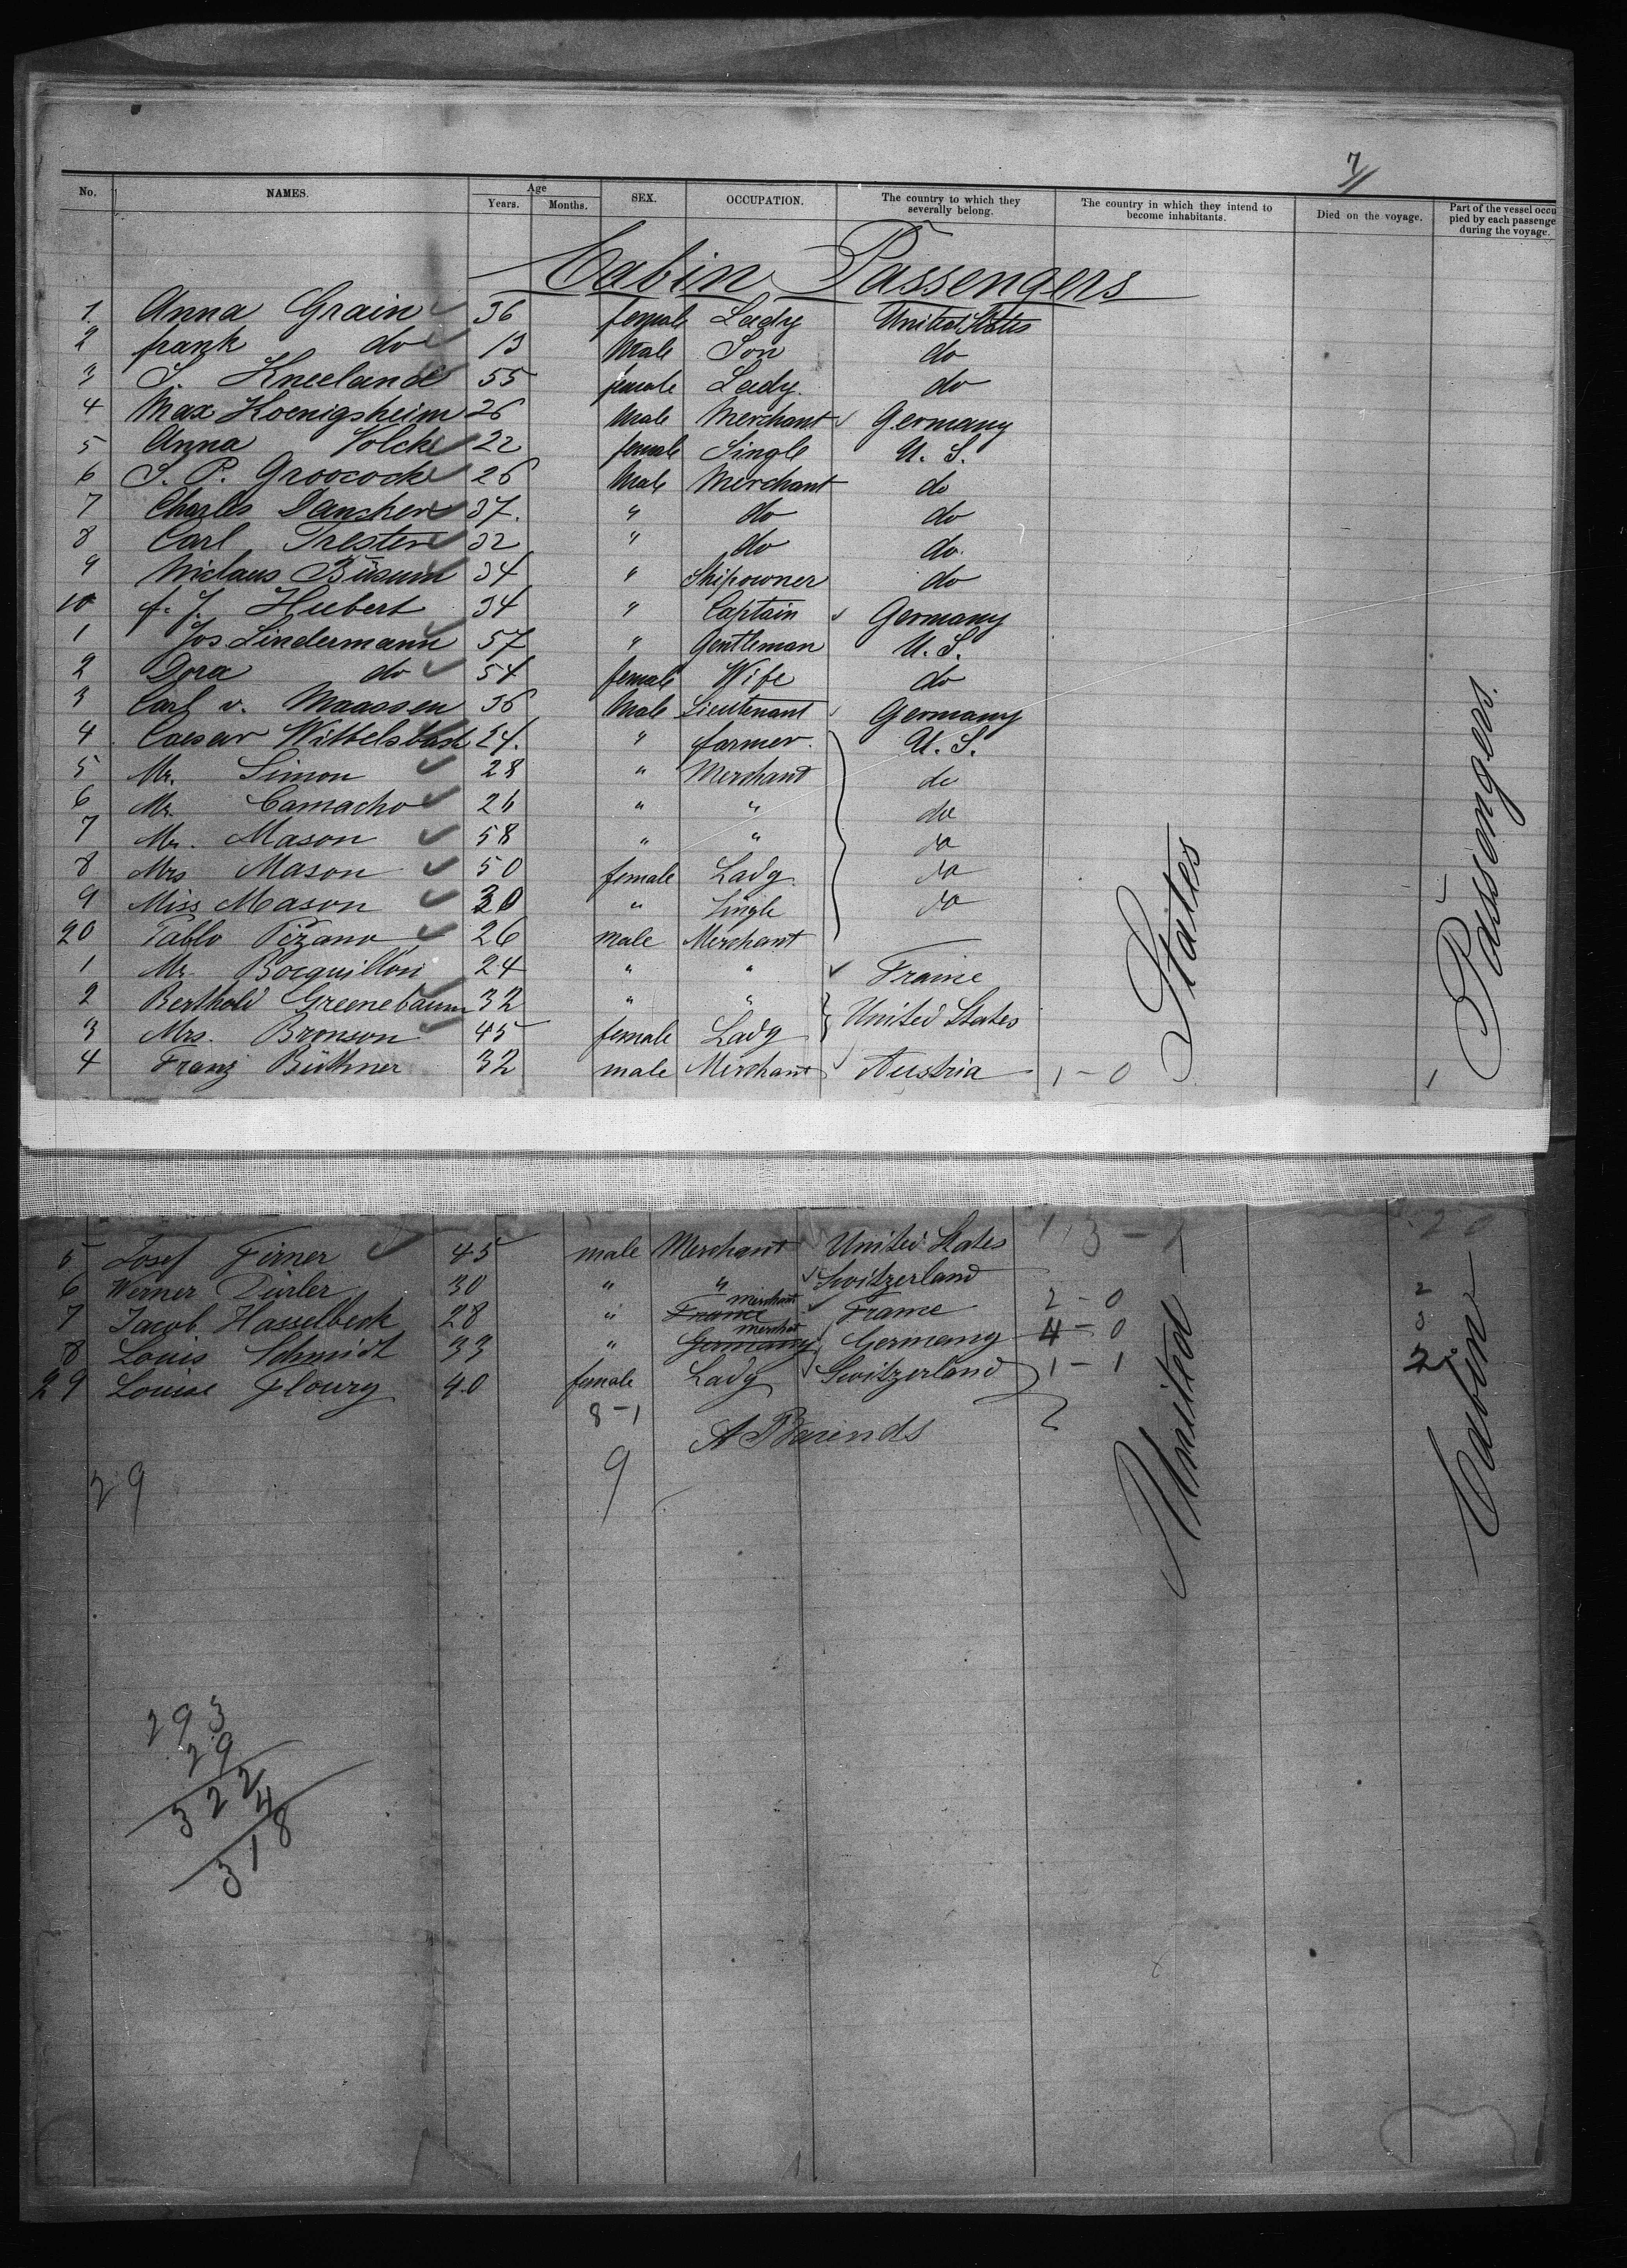 7
No. NAMES. Age Years. Months. SEX. OCCUPATION. The country to which they severally belong. The country in which they intend to become inhabitants. Died on the voyage. Part of the vessel occu pied by each passenge during the voyage.
Cabin Passengers
1 Anna Grain 36 female Lady United States
2 frank do 13 Male Son do
3 S. Kneeland 55 female Lady. do
4 Max Koenigsheim 26 Male Merchant Germany
5 Anna Volcke 22 female Single U. S.
6 S. P. Groocock 26 Male Merchant do
7 Charles Danscher 37. " do do
8 Carl Tresten 32 " do do.
9 Niclaus Büsum 34 " Shipowner do
10 f. J. Hubert 34 " Captain Germany
1 Jos Lindermann 57 " Gentleman U. S.
2 Dora do 54 female Wife do
3 Carl v. Maassen 36 Male Lieutenant Germany
4 Caesar Wittelsbach 24. " farmer. U. S.
5 Mr. Simon 28 " Merchant do
6 Mr. Camacho 26 " " do
7 Mr. Mason 58 " " do
8 Mrs Mason 50 female Lady do
9 Miss Mason 20 " Single do
20 Pablo Pizano 26 male Merchant
1 Mr. Bocquillon 24 " " France
2 Berthold Greenebaum 32 " " United States
3 Mrs. Bronson 45 female Lady
4 Franz Büthner 32 male Merchant Austria 1 - 0 1
5 Josef Firner 45 male Merchant United States 20
6 Werner Dürler 30 " " Switzerland
7 Jacob Hasselbeck 28 " France merchant France 2 - 0 2
8 Louis Schmidt 33 " Germany merchat Germany 4 - 0
29 Louise Floury 40 female Lady Switzerland 1 - 1 2
8 - 1
A Barends
9
29
United States
Cabin Passengers.
293
29
322
4
318